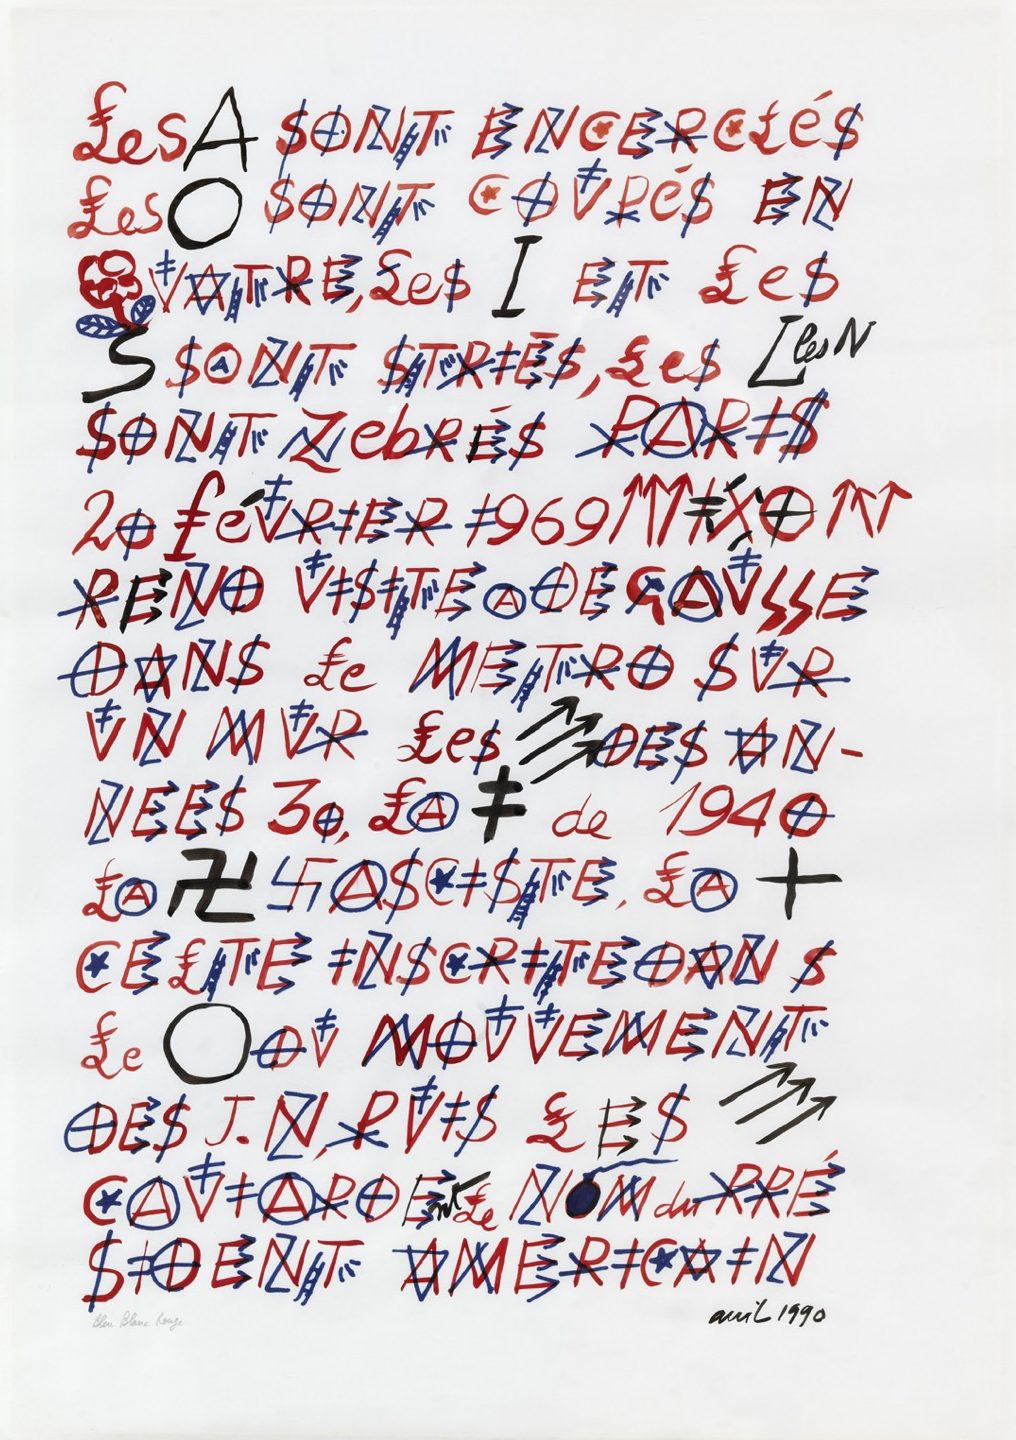 £es A $ONT ENCERC£éS
£es O $ONT COVPéS EN
VATRE, £es I ET £es
S SONT STRIÉS, £es L les N
SONT ZebRÉS PARIS
20 féVRIER 1969 ↑↑↑IXO↑↑↑
REND VISITE A DE GAVϟϟE
DANS £e METRO SVR
VN MVR £es ↗↗↗ DES AN-
NEES 30, £A ‡ de 1940
£A 卍 卐ASCISTE, £A +
CE£TE INSCRITE DANS
£e O DV MOVVEMENT
DES J.N, PVIS £ES ↗↗↗
CAVIARDENT £e NOM du PRÉ
SIDENT AMERICAIN
Bleu Blanc Rouge
avril 1990